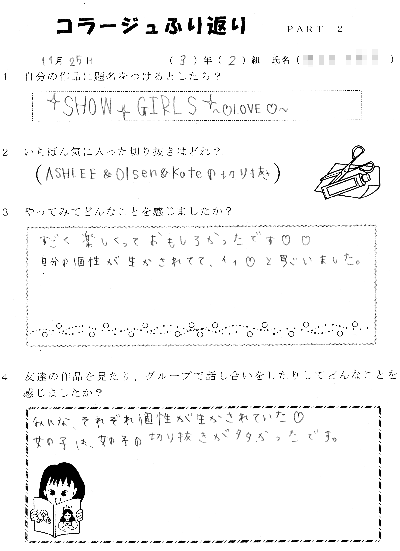 コラージュふり返り PART 2
11月25日 (3)年(2)組 氏名( )
1 自分の作品に題名をつけるとしたら?
☆SHOW☆GIRLS☆~♡LOVE♡~
2 いちばん気に入った切り抜きはどれ?
(ASHLEE&Olsen&Kateの切り抜き)
3 やってみてどんなことを感じましたか?
すごく楽しくっておもしろかったです♡♡
自分の個性が生かされてて、イイ♡と思いました。
4 友達の作品を見たり、グループで話し合いをしたりしてどんなことを
感じましたか?
みんな、それぞれ個性が生かされていた♡
女の子は、女の子の切り抜きが多かったです。